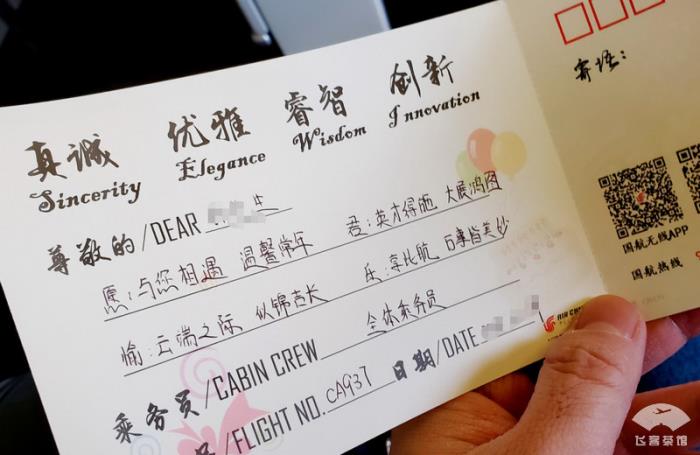 真诚 优雅 睿智 创新
Sincerity Elegance Wisdom Innovation
尊敬的/DEAR
愿:与您相遇 温馨常年 君:英才得施 大展鸿图
愉:云端之际 似锦吉长 乐:享此航 百事皆美妙
乘务员/CABIN CREW 全体乘务员
/FLIGHT NO. CA937 日期/DATE
寄语:
国航无线APP
国航热线
AIR CH
飞客茶馆